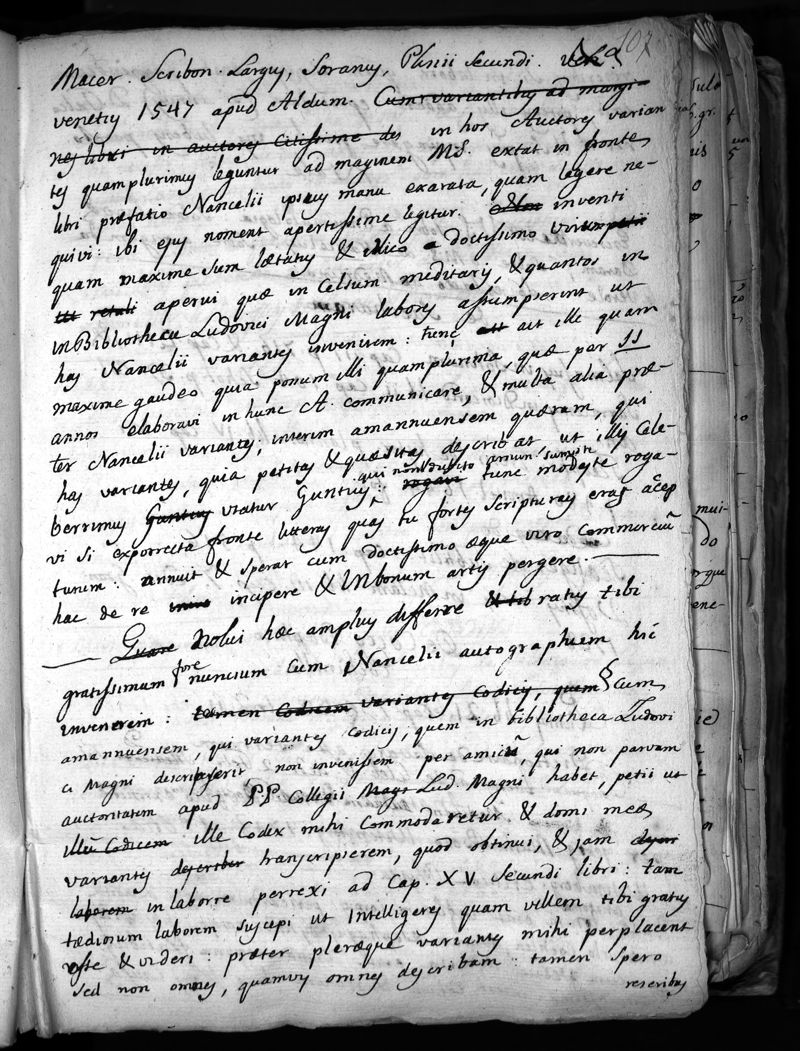 107
Macer. Scribon. Largus, Soranus, Plinii Secundi.
venetiis 1547 apud Aldum. Cum variantibus ad margi-
nes libri in auctores Citissime des in hos Auctores varian
tes quamplurimes leguntur ad maginem MS. extat in fronte
libri præfatio Nancelii ipsius manu exarata, quam legere ne-
quivi: ibi ejus noment apertissime legitur. inventi
quam maxime sum lætatus & illico a doctissimo viro impetii
retuli aperui quæ in Celsum meditaris, & quantos in
in Bibliotheca Ludovici Magni labores assumpserint ut
has Nancelii variantes invenirem: tunc est ait ille quam
maxime gaudeo quia possum illi quamplurima, quæ per 55
annos elaboravi in hunc A. communicare, & multa alia præ-
ter Nancelii variantes; interim amannuensem quæram, qui
has variantes, quia petitas & quæsitas describat ut illis Cele-
qui non dubito amun sumpti
berrimus Guntius utatur Guntius: rogavi tunc modeste roga-
vi si exporrecta fronte litteras quas tu fortes scripturas eras accep
turum: annuit & sperat cum doctissimo æque viro Commerciũ
hac de re incipere & in bonum artis pergere.
Quare Nolui hæc amplius differre ratus tibi
fore
gratissimum nuncium cum Nancelii autographuem hic
invenerim: tamen Codicem variantes Codicis, quem cum
amannuensem, qui variantes codicis, quem in bibliotheca Ludovi
ci Magni descripserit non invenissem per amicũ, qui non parvam
auctoritatem apud P.P. Collegii Magt Lud. Magni habet, petii ut
illũ Codicem ille Codex mihi Commodaretur & domi meæ
variantes describer transcripserem, quod obtinui, & jam
laborem in laborre perrexi ad Cap. XV Secundi libri: tam
tædiosum laborem suscepi ut Intelligeres quam vellem tibi gratus
esse & videri: præter pleræque variantes mihi perplacent
sed non omnes, quamvis omnes describam: tamen spero
rescribas